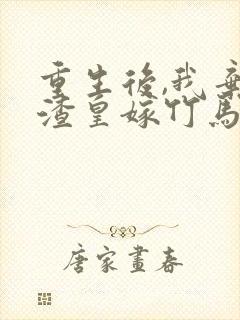 重生後,我棄
渣皇嫁竹馬
唐家畫春